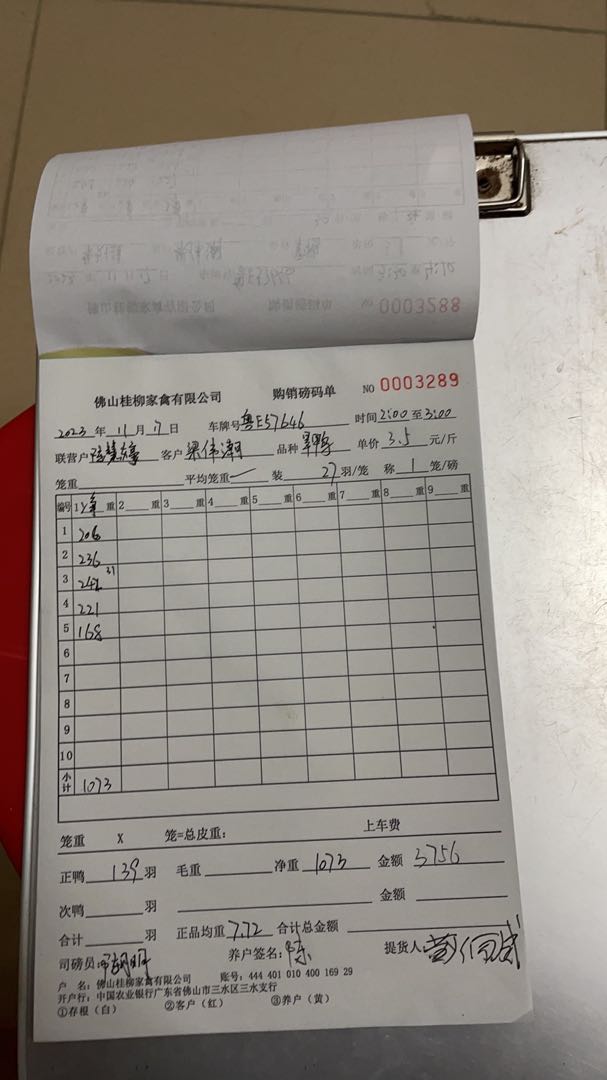 NO 0003288
佛山桂柳家禽有限公司 购销磅码单 NO 0003289
2023年11月7日 车牌号粤E57646 时间2:00至3:00
联营户 客户梁伟潮 品种 单价3.5元/斤
笼重 平均笼重一 装27羽/笼 称1笼/磅
编号 1 重 2 重 3 重 4 重 5 重 6 重 7 重 8 重 9 重
1 206
2 236
3 242 31
4 221
5 168
6
7
8
9
10
小计 1073
笼重 X 笼=总皮重: 上车费
正鸭139羽 毛重 净重1073 金额3756
次鸭 羽 金额
合计 羽 正品均重7.72 合计总金额
司磅员: 养户签名:陈 提货人:
户 名: 佛山桂柳家禽有限公司 账号: 444 401 010 400 169 29
开户行: 中国农业银行广东省佛山市三水区三水支行
①存根(白) ②客户(红) ③养户(黄)